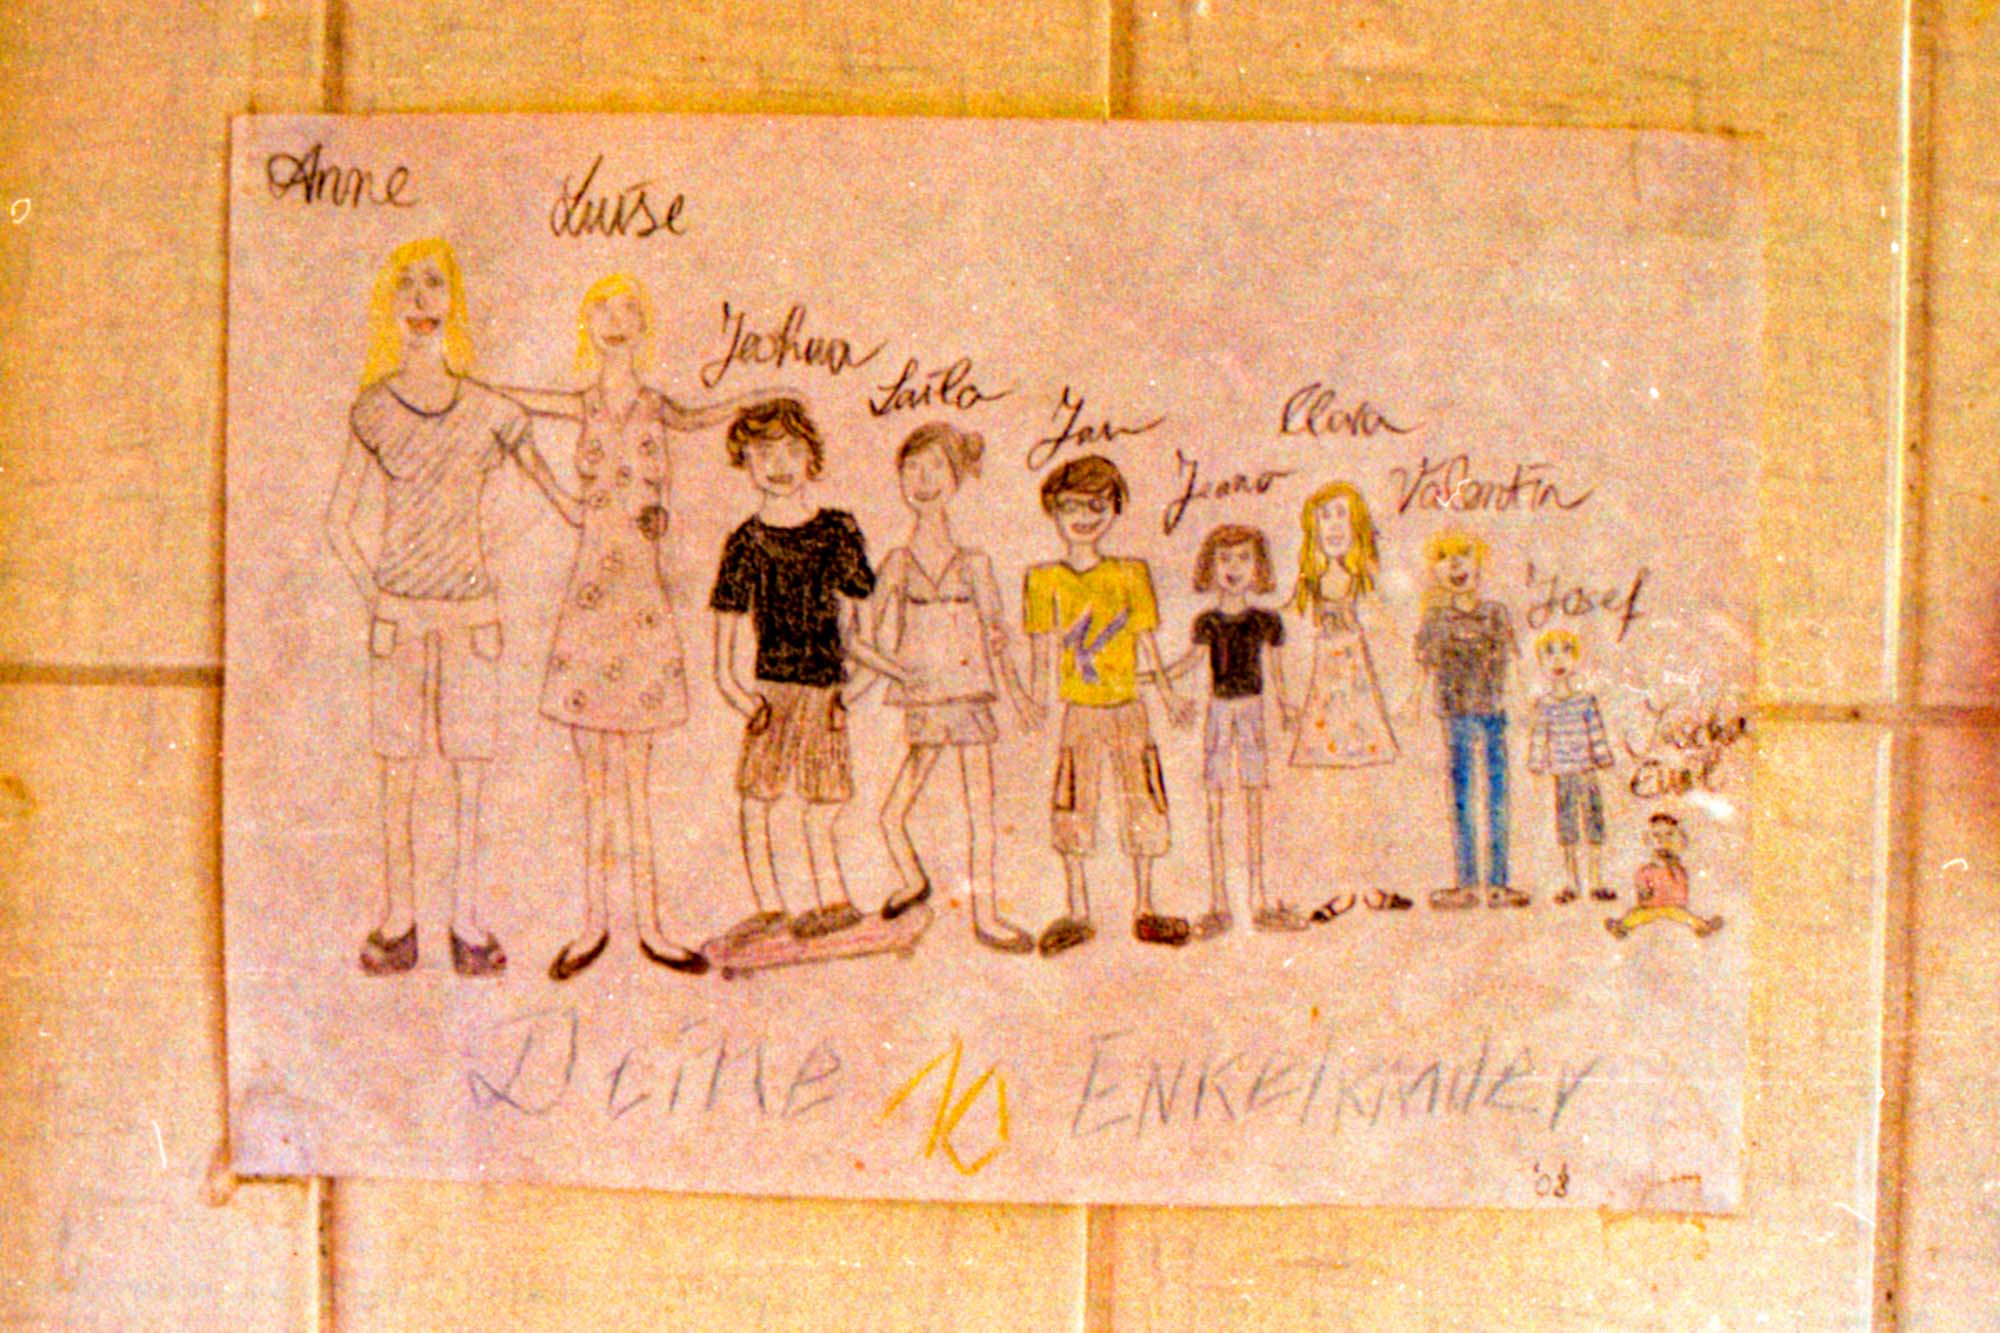 Anne
Luise
Joshua
Laila
Jan
Clara
Valentin
Josef
Emil
Deine 10 Enkelkinder
'08